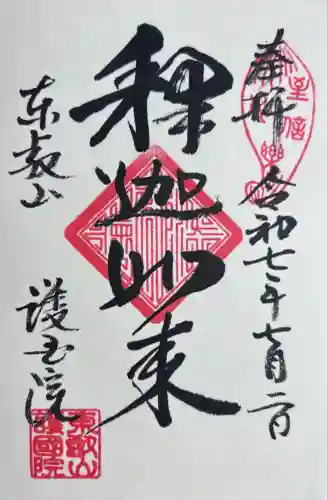 奉拝 令和七年七月二日
釋迦如来
東叡山
護国院
東叡山
護國院